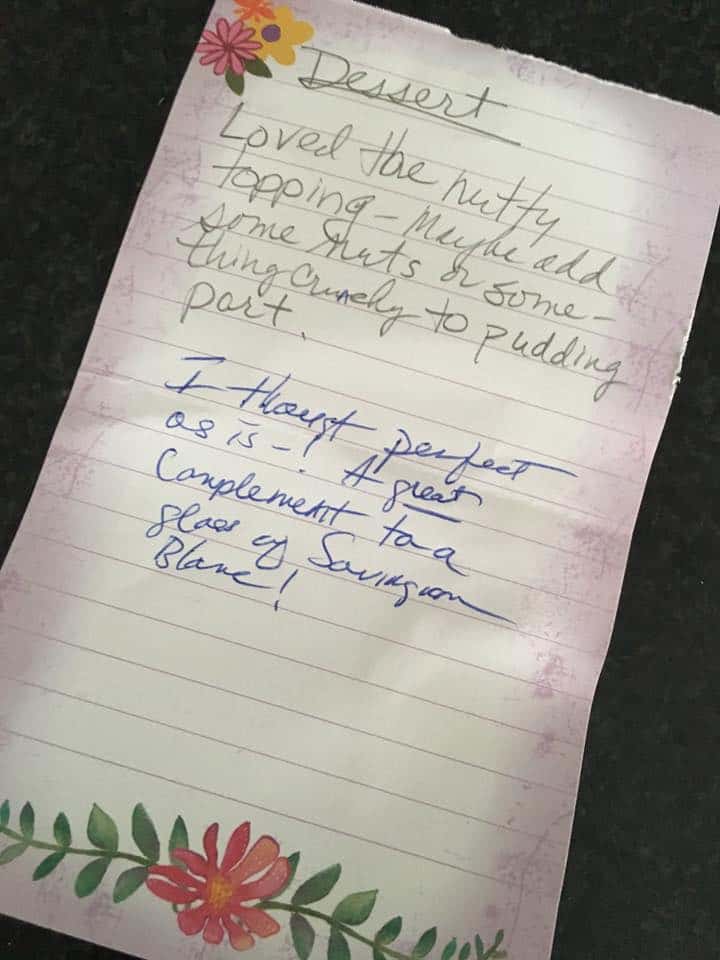 Dessert
Loved the nutty
topping - Maybe add
some nuts or some-
thing crunchy to pudding
part.
I thought perfect
as is - ! A great
Complement to a
glass of Sauvignon
Blanc!